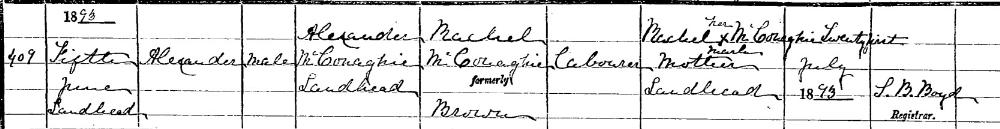 1893
409 Fifth June Landhead
Alexander
male
Alexander McConaghie Landhead
Rachel McConaghie formerly Brown
Labourer
Rachel her X mark McConaghie Mother Landhead
Twenty first July 1893
S. B. Boyd Registrar.